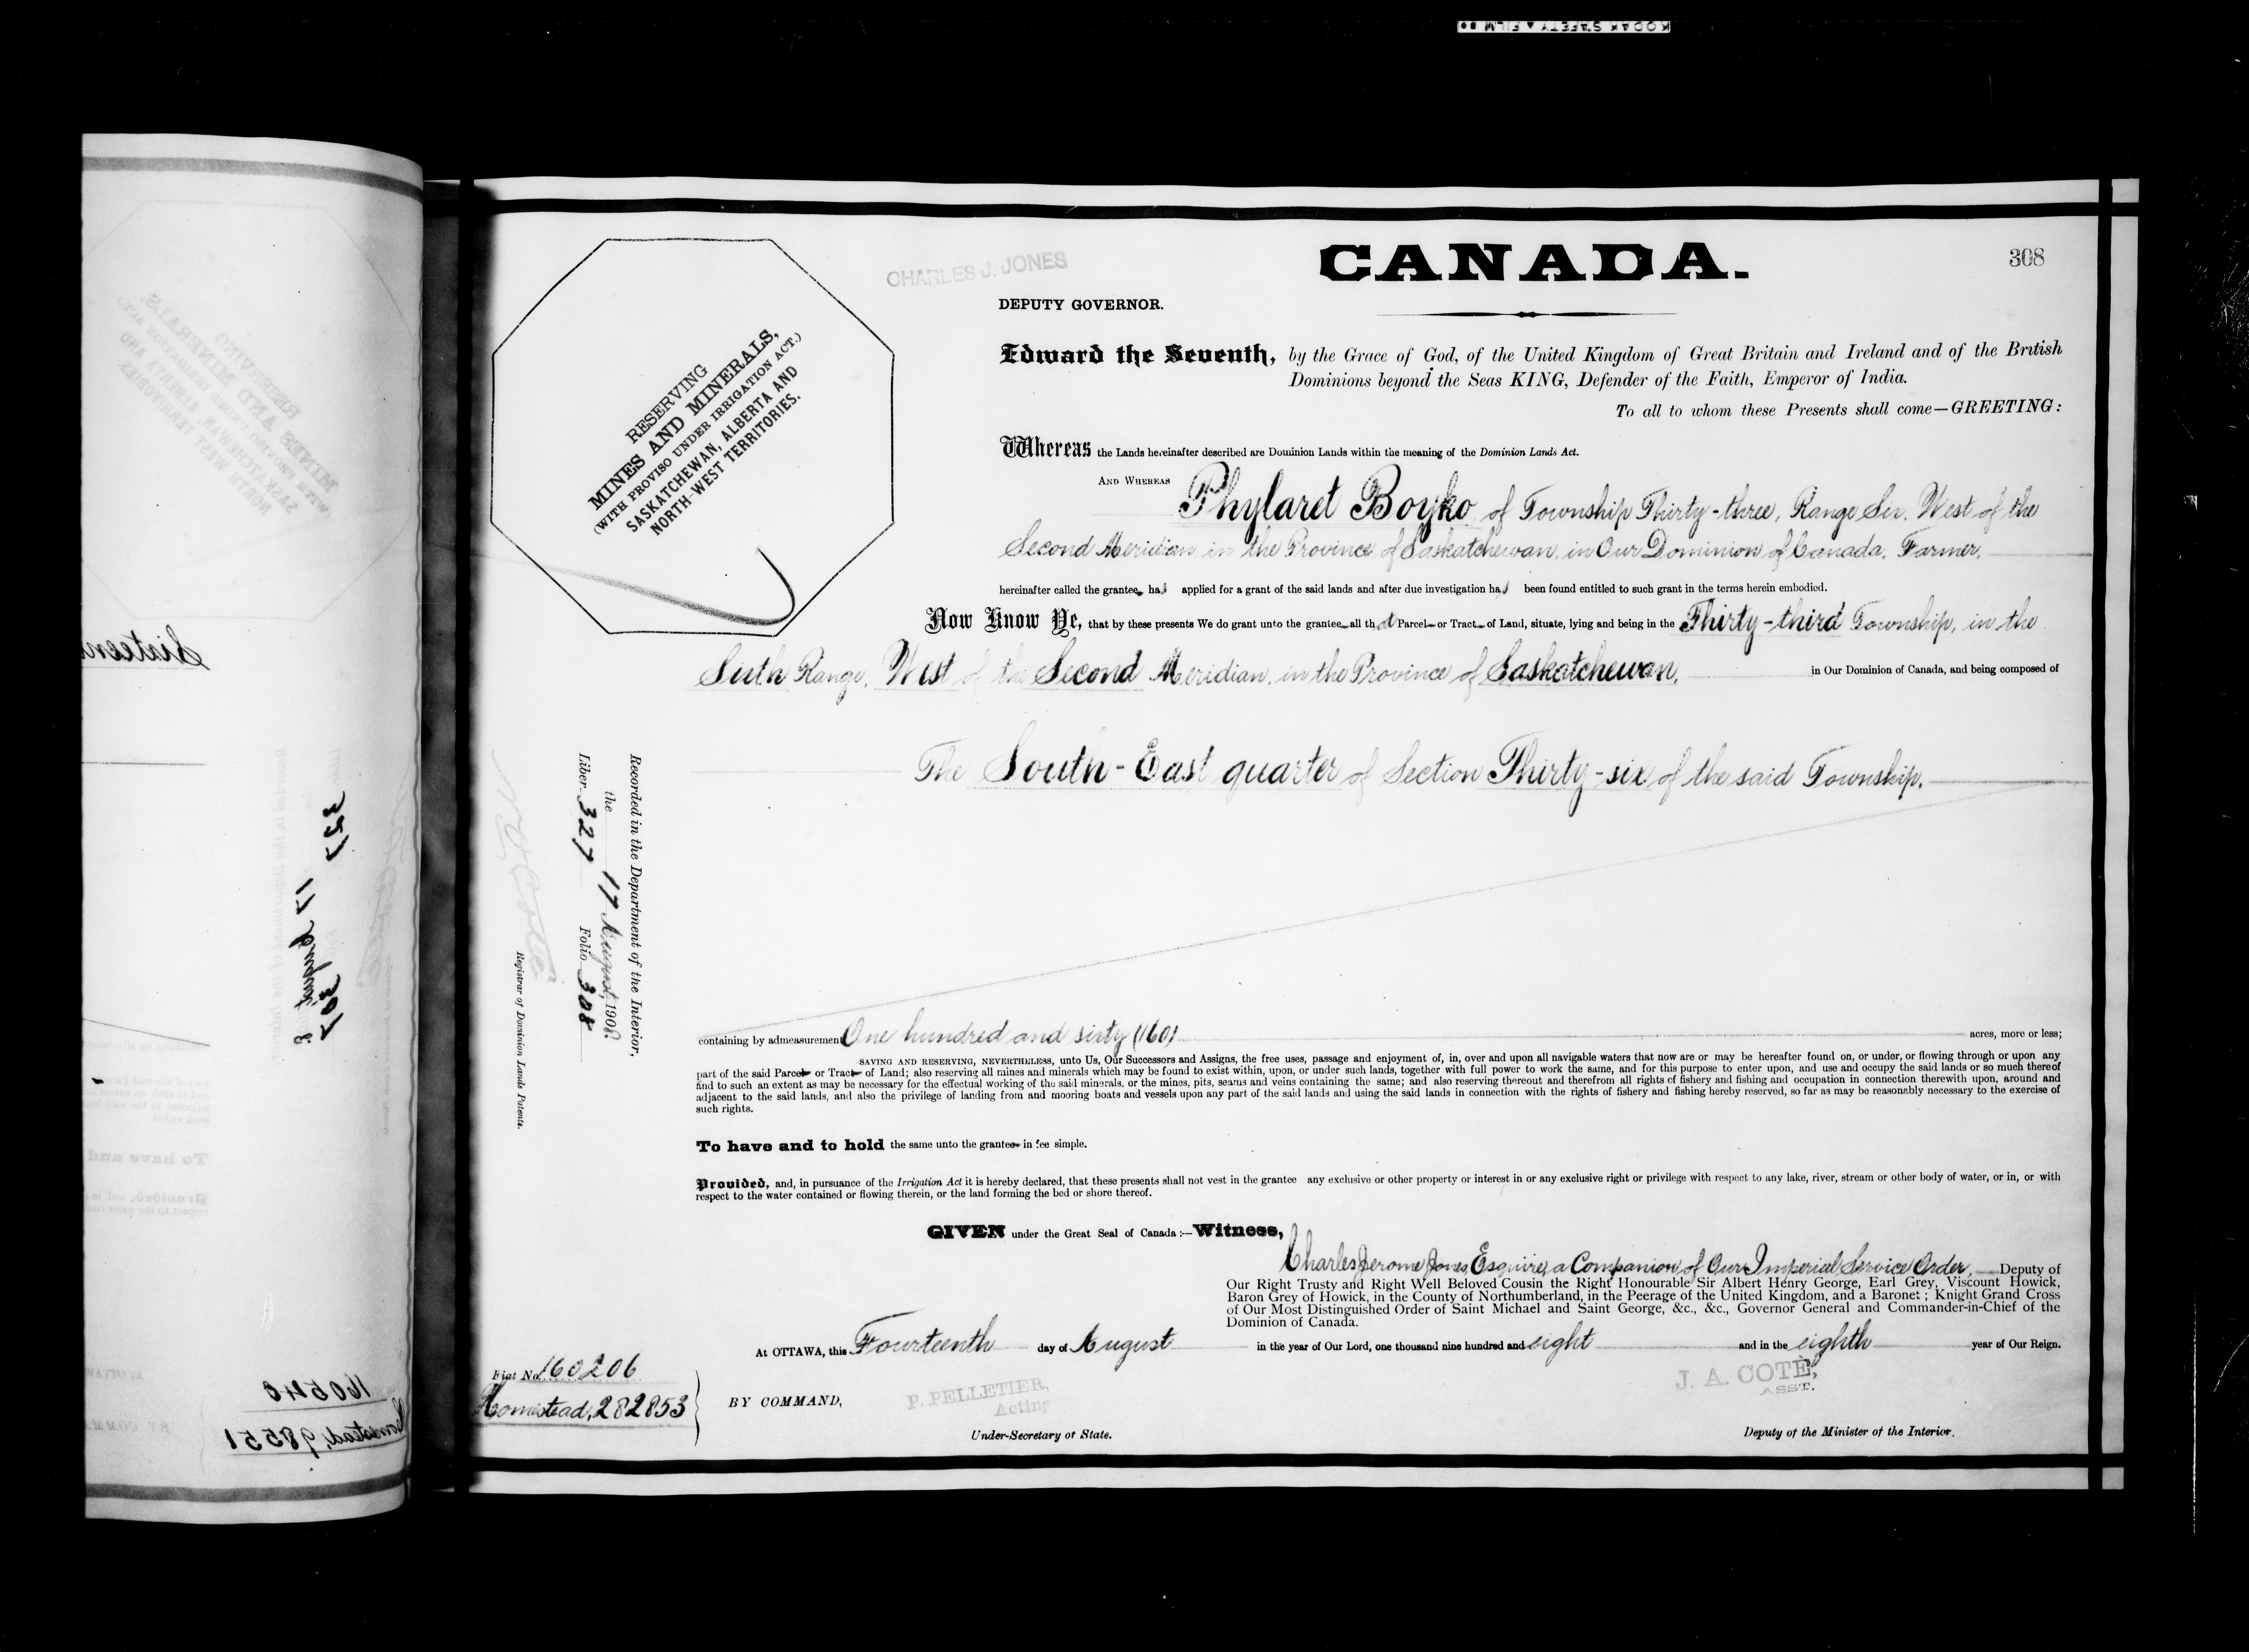 KODAK SAFETY FILM
CANADA.
308
CHARLES J. JONES
DEPUTY GOVERNOR.
RESERVING
MINES AND MINERALS,
(WITH PROVISO UNDER IRRIGATION ACT.)
SASKATCHEWAN, ALBERTA AND
NORTH-WEST TERRITORIES.
Edward the Seventh, by the Grace of God, of the United Kingdom of Great Britain and Ireland and of the British
Dominions beyond the Seas KING, Defender of the Faith, Emperor of India.
To all to whom these Presents shall come—GREETING:
Whereas the Lands hereinafter described are Dominion Lands within the meaning of the Dominion Lands Act.
AND WHEREAS Phylaret Boyko, of Township Thirty-three, Range Six, West of the
Second Meridian, in the Province of Saskatchewan, in Our Dominion of Canada, Farmer,
hereinafter called the grantee, has applied for a grant of the said lands and after due investigation has been found entitled to such grant in the terms herein embodied.
Now Know Ye, that by these presents We do grant unto the grantee all that Parcel or Tract of Land, situate, lying and being in the Thirty-third Township, in the
Sixth Range, West of the Second Meridian, in the Province of Saskatchewan, in Our Dominion of Canada, and being composed of
The South-East quarter of Section Thirty-six of the said Township.
Recorded in the Department of the Interior,
the 17 August, 1908.
Liber 327 Folio 308
Registrar of Dominion Lands Patents.
containing by admeasurement One hundred and sixty (160) acres, more or less;
SAVING AND RESERVING, NEVERTHELESS, unto Us, Our Successors and Assigns, the free uses, passage and enjoyment of, in, over and upon all navigable waters that now are or may be hereafter found on, or under, or flowing through or upon any
part of the said Parcel or Tract of Land; also reserving all mines and minerals which may be found to exist within, upon, or under such lands, together with full power to work the same, and for this purpose to enter upon, and use and occupy the said lands or so much thereof
and to such an extent as may be necessary for the effectual working of the said minerals, or the mines, pits, seams and veins containing the same; and also reserving thereout and therefrom all rights of fishery and fishing and occupation in connection therewith upon, around and
adjacent to the said lands, and also the privilege of landing from and mooring boats and vessels upon any part of the said lands and using the said lands in connection with the rights of fishery and fishing hereby reserved, so far as may be reasonably necessary to the exercise of
such rights.
To have and to hold the same unto the grantee in fee simple.
Provided, and, in pursuance of the Irrigation Act it is hereby declared, that these presents shall not vest in the grantee any exclusive or other property or interest in or any exclusive right or privilege with respect to any lake, river, stream or other body of water, or in, or with
respect to the water contained or flowing therein, or the land forming the bed or shore thereof.
GIVEN under the Great Seal of Canada:—Witness,
Charles Jerome Jones, Esquire, a Companion of Our Imperial Service Order, Deputy of
Our Right Trusty and Right Well Beloved Cousin the Right Honourable Sir Albert Henry George, Earl Grey, Viscount Howick,
Baron Grey of Howick, in the County of Northumberland, in the Peerage of the United Kingdom, and a Baronet; Knight Grand Cross
of Our Most Distinguished Order of Saint Michael and Saint George, &c., &c., Governor General and Commander-in-Chief of the
Dominion of Canada.
At OTTAWA, this Fourteenth day of August in the year of Our Lord, one thousand nine hundred and eight and in the eighth year of Our Reign.
Fiat No. 160206
Homestead, 282853
BY COMMAND,
P. PELLETIER,
Acting
Under-Secretary of State.
J. A. COTÉ,
ASST.
Deputy of the Minister of the Interior.